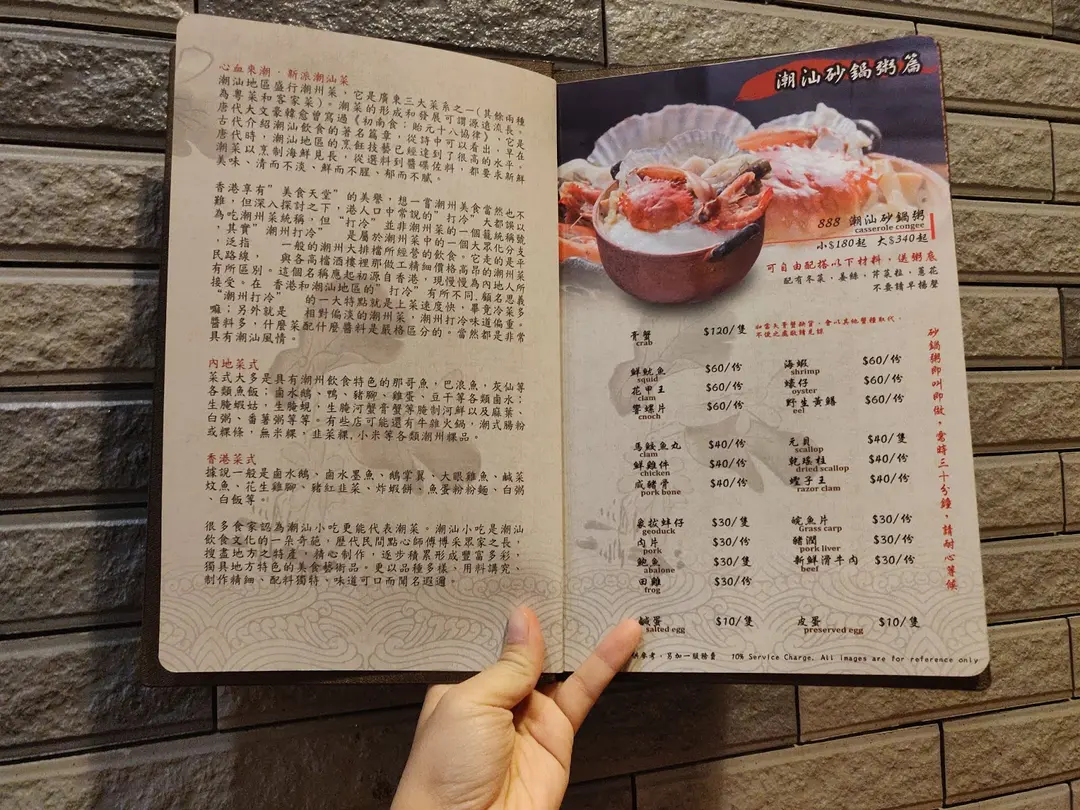 心血來潮．新派潮汕菜
潮汕地區盛行潮州菜，它是廣東三大菜系之一(其餘兩種
為粵菜和客家菜)。潮菜的形成和發展可謂源遠流長。
唐代大文豪韓愈曾寫過《初南食；貽元十八協律》，它是
古代介紹潮汕飲食的著名篇章，從詩中可以看出，早在
唐代時，潮汕地區的烹飪技藝已經達到了很高的水平。
潮菜以烹制海鮮見長，從選料到醬碟佐料，都要求新鮮
美味、清而不淡、鮮而不腥、郁而不膩。
香港享有"美食天堂"的美譽，想一嘗潮州美食當然也不
難，但深入探討之下，港人口中常說的"打冷"大都誤以
為吃潮州菜統稱，但"打冷"並非潮州菜的一個籠統稱號
，其實"潮州打冷" 是屬於潮州菜中的一個大眾化分支
，泛指 一般的潮州大排檔所經營的飲食。它走的是平
民路線， 與各高檔酒樓裡那做工精細價格高昂的潮州菜
有所區別。這個名稱應起初源自香港，現慢慢為內地人所
接受。在 香港和潮汕地區的"打冷" 有所不同.顧名思義
"潮州打冷" 的一大特點就是上菜速度快，畢竟冷菜多
嘛；另外就是 相對偏淡的潮州菜，潮州打冷味道偏重。
醬料多，什麼菜配什麼醬料是嚴格區分的。當然都是非常
具有潮汕風情。
內地菜式
菜式大多是具有潮州飲食特色的那哥魚，巴浪魚，灰仙等
各類魚飯；鹵水鵝、鴨、豬腳、雞蛋、豆干等各類鹵水；
生腌蝦姑、生腌蜆、生腌河蟹膏蟹等腌制河鮮以及麻葉、
白粥、番薯粥等等。有些店可能還有牛雜火鍋，潮式腸粉
或粿條，無米粿，韭菜粿,小米等各類潮州粿品。
香港菜式
據說一般是鹵水鵝、鹵水墨魚、鵝掌翼、大眼雞魚、鹹菜
炆魚、花生雞腳、豬紅韭菜、炸蝦餅、魚蛋粉粉麵、白粥
、白飯等。
很多食家認為潮汕小吃更能代表潮菜。潮汕小吃是潮汕
飲食文化的一朵奇葩，歷代民間點心師傅博采眾家之長，
搜盡地方之特產，精心制作，逐步積累形成豐富多彩，
獨具地方特色的美食藝術品。更以品種多樣、用料講究、
制作精細、配料獨特、味道可口而聞名遐邇。
潮汕砂鍋粥篇
888 潮汕砂鍋粥
casserole congee
小$180起 大$340起
可自由配搭以下材料，送粥底
配有冬菜，姜絲，芹菜粒，蔥花
不要請早揚聲
青蟹 $120/隻
crab
如當天青蟹缺貨，會以其他蟹種取代，
不便之處敬請見諒
鮮魷魚 $60/份 海蝦 $60/份
squid shrimp
花甲王 $60/份 蠔仔 $60/份
clam oyster
響螺片 $60/份 野生黃鱔 $60/份
cnoch eel
馬鮫魚丸 $40/份 元貝 $40/隻
clam scallop
鮮雞件 $40/份 乾瑤柱 $40/份
chicken dried scallop
咸豬骨 $40/份 蟶子王 $40/份
pork bone razor clam
象拔蚌仔 $30/隻 鯇魚片 $30/份
geoduck Grass carp
肉片 $30/份 豬潤 $30/份
pork pork liver
鮑魚 $30/隻 新鮮滑牛肉 $30/份
abalone beef
田雞 $30/份
frog
鹹蛋 $10/隻 皮蛋 $10/隻
salted egg preserved egg
砂鍋粥即叫即做，需時三十分鐘，請耐心等候
供參考，另加一服務費 10% Service Charge. All images are for reference only